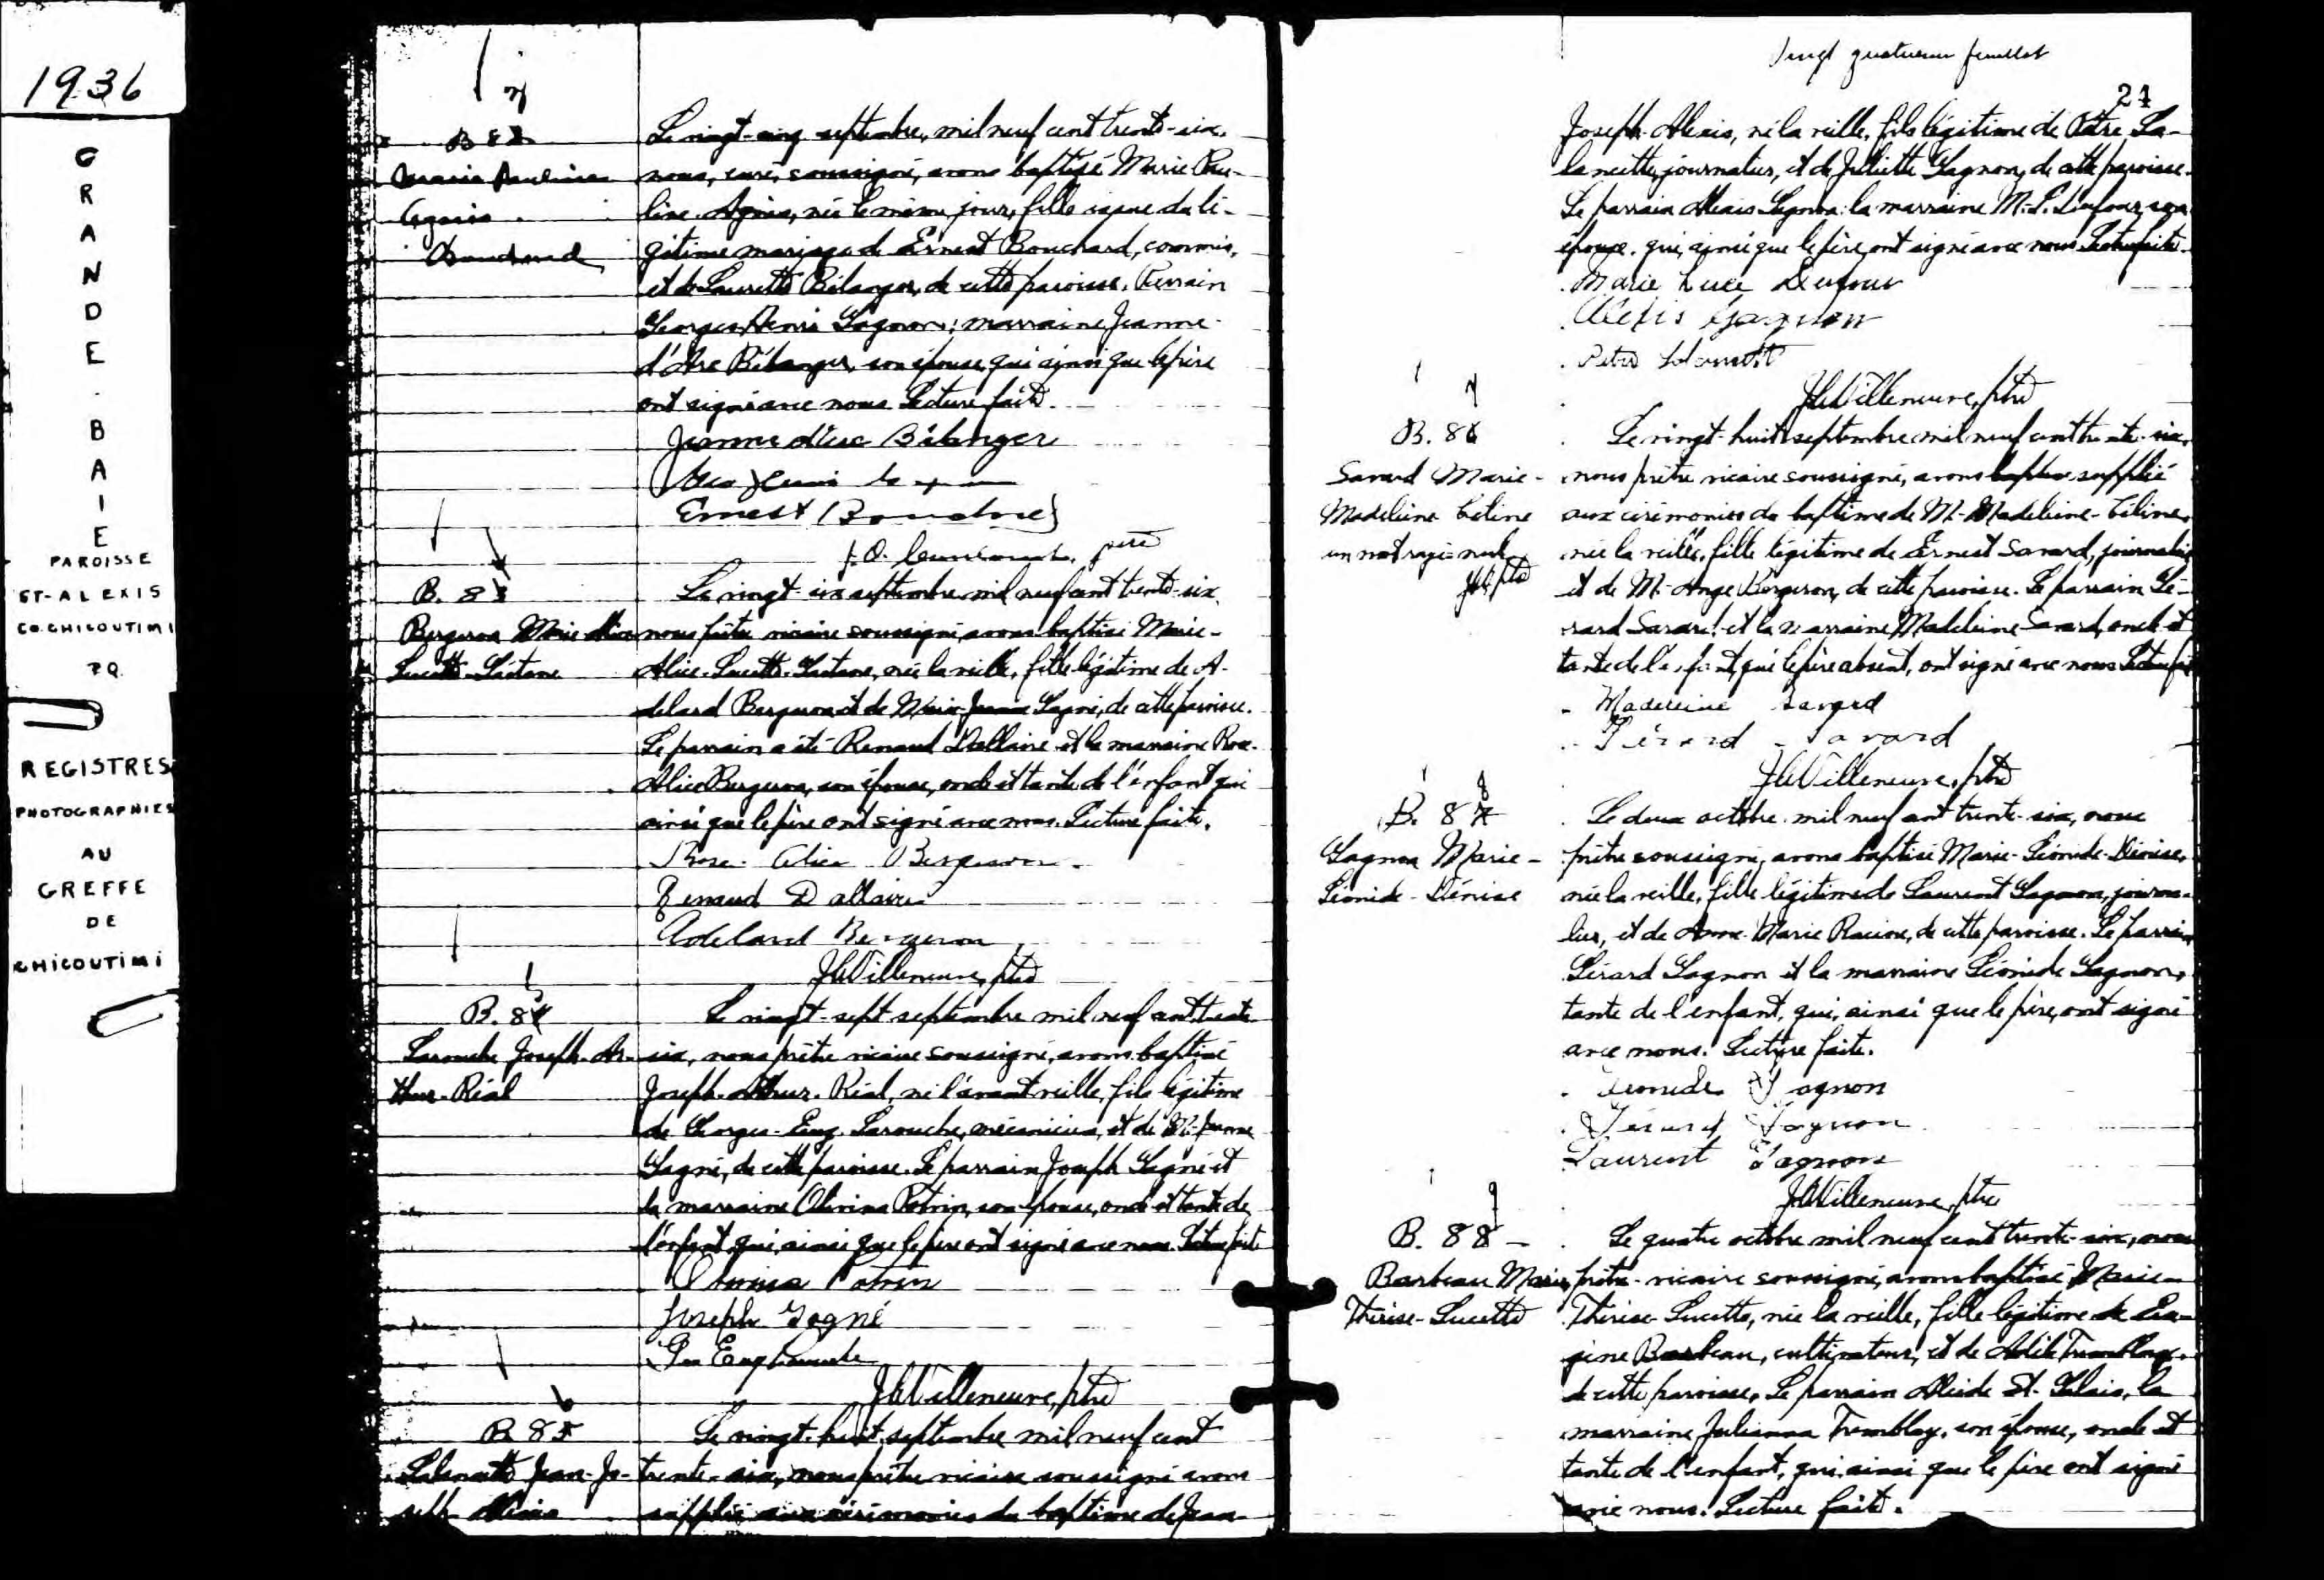 1936
GRANDE-BAIE
PAROISSE
ST-ALEXIS
CO. CHICOUTIMI
P.Q.
REGISTRES
PHOTOGRAPHIES
AU
GREFFE
DE
CHICOUTIMI
B 8
Marie Pauline
Agnès
Bouchard
Le vingt-cinq septembre, mil neuf cent trente-six,
nous, curé, soussigné, avons baptisé Marie Pau-
line Agnès, née le même jour, fille issue du lé-
gitime mariage de Ernest Bouchard, commis,
et de Laurette Bélanger, de cette paroisse. Parrain
Georges Henri Gagnon; marraine Jeanne-
d'Arc Bélanger, son épouse, qui ainsi que le père
ont signé avec nous. Lecture faite.
Jeanne d'Arc Bélanger
Ernest Bouchard
ptre
B. 8
Bergeron Marie Alice
Lucette Gaétane
Le vingt-six septembre mil neuf cent trente-six
nous prêtre vicaire soussigné, avons baptisé Marie-
Alice-Lucette-Gaétane, née la veille, fille légitime de A-
delard Bergeron et de Marie-Jeanne Gagné, de cette paroisse.
Le parrain a été Renaud Dallaire et la marraine Rose-
Alice Bergeron, son épouse, oncle et tante de l'enfant qui
ainsi que le père ont signé avec nous. Lecture faite.
Rose-Alice Bergeron
Renaud Dallaire
Adelard Bergeron
Villeneuve, ptre
B. 8
Larouche Joseph-Ar-
thur-Réal
Le vingt-sept septembre mil neuf cent trente-
six, nous prêtre vicaire soussigné, avons baptisé
Joseph-Arthur-Réal, né l'avant veille, fils légitime
de Georges-Eug. Larouche, mécanicien, et de M.-Jeanne
Gagné, de cette paroisse. Le parrain Joseph Gagné et
la marraine Potvin, son épouse, oncle et tante de
l'enfant, qui, ainsi que le père ont signé avec nous. Lecture faite
Potvin
Joseph Gagné
Geo Eug Larouche
Villeneuve, ptre
B. 8
Jean-Jo-
seph-Alexis
Le vingt-huit septembre mil neuf cent
trente-six, nous prêtre vicaire soussigné avons
suppléé aux cérémonies du baptême de Jean-
Vingt quatrième feuillet
24
Joseph-Alexis, né la veille, fils légitime de Pitre La-
journalier, et de Juliette Gagnon, de cette paroisse.
Le parrain Alexis Gagnon la marraine M.-L. Dufour, son
épouse, qui, ainsi que le père, ont signé avec nous. Lecture faite.
Marie Luce Dufour
Alexis Gagnon
Villeneuve, ptre
B. 8
Savard Marie-
Madeleine Céline
un mot rayé nul
ptre
Le vingt-huit septembre mil neuf cent trente-six,
nous prêtre vicaire soussigné, avons suppléé
aux cérémonies du baptême de M.-Madeleine-Céline,
née la veille, fille légitime de Ernest Savard, journalier
et de M.-Ange Bergeron, de cette paroisse. Le parrain Gé-
rard Savard et la marraine Madeleine Savard, oncle et
tante de l'enfant, qui le père absent, ont signé avec nous. Lecture faite
Madeleine Savard
Gérard Savard
Villeneuve, ptre
B. 8
Gagnon Marie-
Léonide-Dénise
Le deux octobre mil neuf cent trente-six, nous
prêtre soussigné, avons baptisé Marie-Léonide-Dénise,
née la veille, fille légitime de Laurent Gagnon, journa-
lier, et de Anne-Marie Racine, de cette paroisse. Le parrain
Gérard Gagnon et la marraine Léonide Gagnon,
tante de l'enfant, qui, ainsi que le père, ont signé
avec nous. Lecture faite.
Léonide Gagnon
Gérard Gagnon
Laurent Gagnon
Villeneuve, ptre
B. 88
Barbeau Marie
Thérèse-Lucette
Le quatre octobre mil neuf cent trente-six, nous
prêtre-vicaire soussigné, avons baptisé Marie-
Thérèse-Lucette, née la veille, fille légitime de Eu-
gène Barbeau, cultivateur, et de Adèle Tremblay,
de cette paroisse. Le parrain Alcide St-Gelais, la
marraine Julianna Tremblay, son épouse, oncle et
tante de l'enfant, qui, ainsi que le père ont signé
avec nous. Lecture faite.